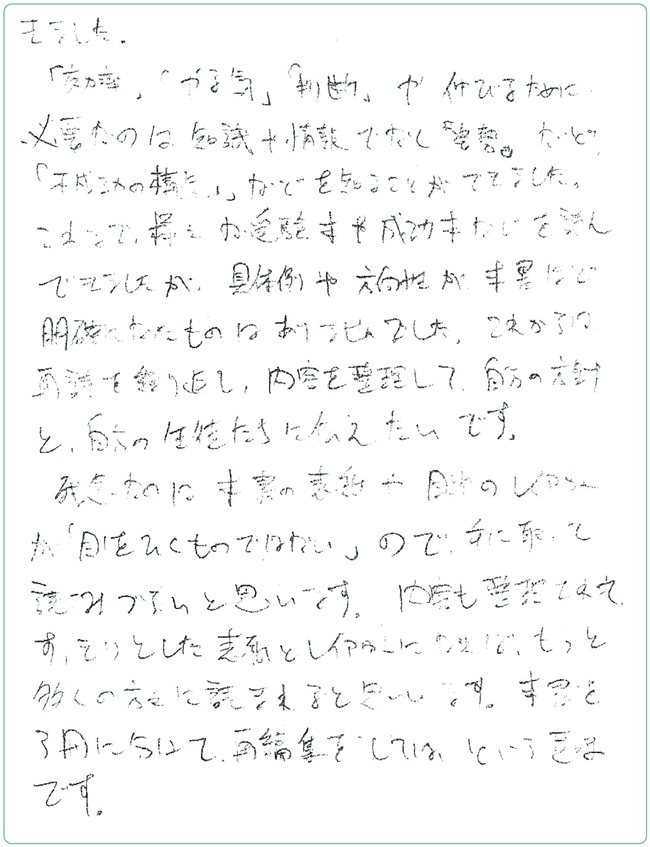 きました。
「効率」「やる気」「判断」が伸びるために
必要なのは知識や情報でなく『姿勢』など、
「不成功の構造」などを知ることができました。
これまで、様々な受験本や成功本などを読ん
できましたが、具体例や方向性が本書ほど
明確になったものはありませんでした。これからは
再読を繰り返し、内容を整理して、自分の方針
と、自分の生徒たちに伝えたいです。
残念なのは本書の表紙や目次のレイアウト
が「目をひくものではない」ので、手に取って
読みづらいと思います。内容も整理されて、
すっきりとした表紙とレイアウトになれば、もっと
多くの方々に読まれると思います。本書を
3月に向けて、再編集をしては、という意味
です。